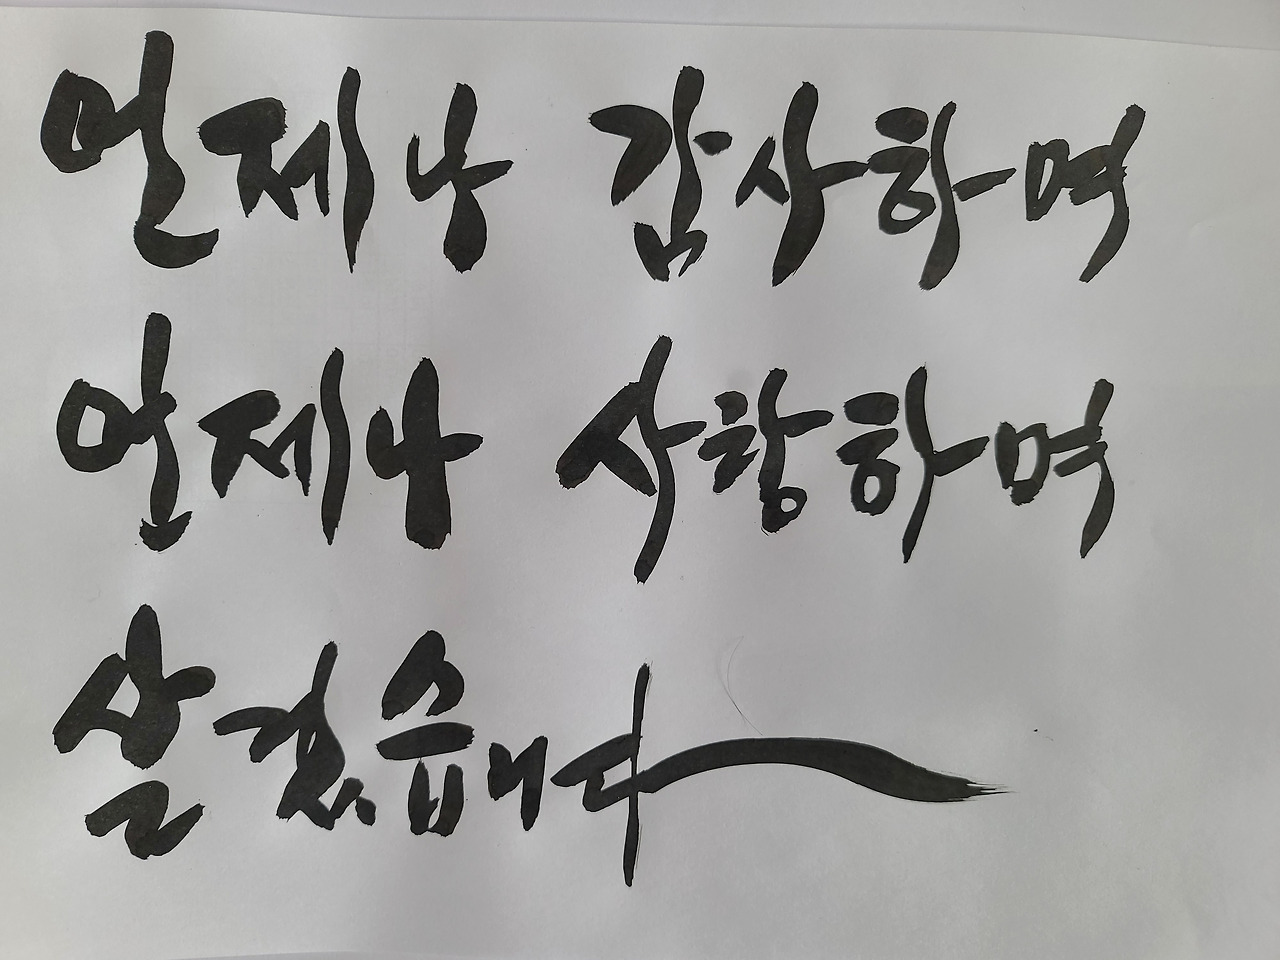 언제나 감사하며
언제나 사랑하며
살겠습니다